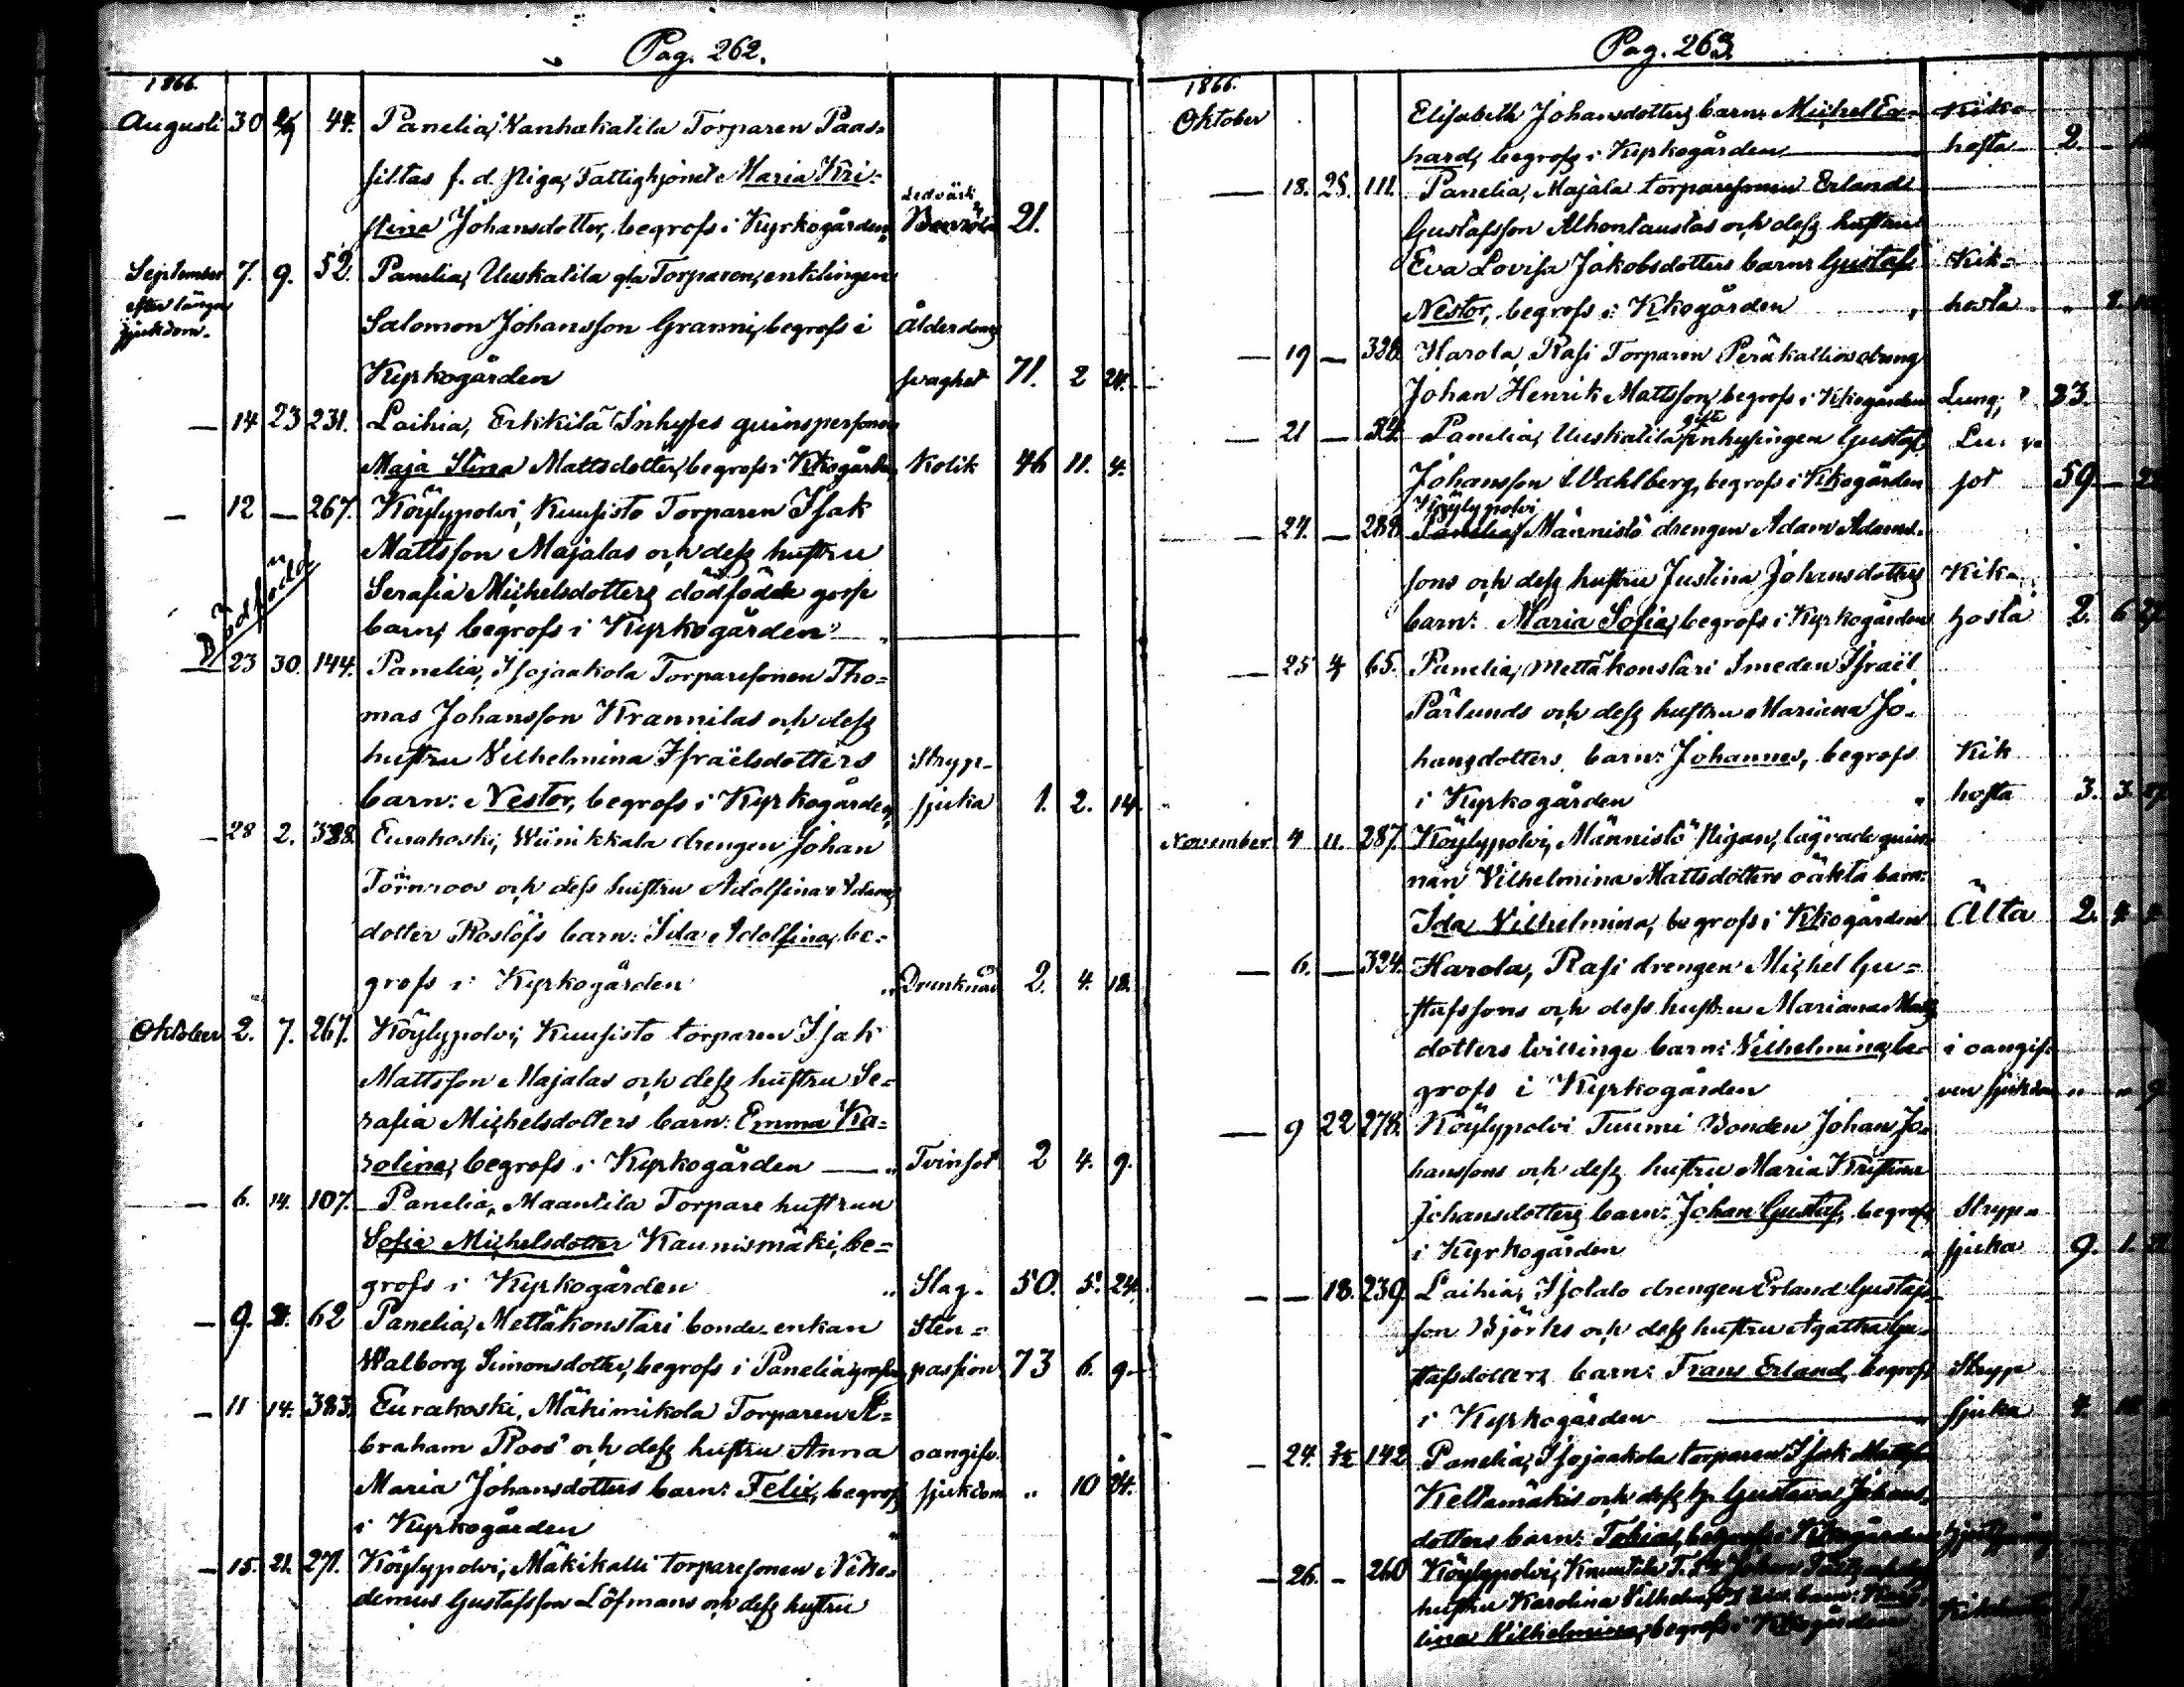 Pag. 262.
1866.
Augusti 30 2/9 44. Panelia, Vanhakatila Torparen Paas-
siltas f. d. Piga, Fattighjonet Maria Kri-
stina Johansdotter, begrofs i Kyrkogården Ledvärk 21.
September 7. 9. 52. Panelia, Uuskatila gla Torparen, enklingen
efter långan sjukdom. Salomon Johansson Granni, begrofs i Ålderdoms
Kyrkogården svaghet 71. 2 24.
— 14 23 231. Laihia, Erkkilä Inhyses qvinspersonen
Maja Stina Mattsdotter, begrofs i Kkogården Kolik 46 11. 4.
— 12 — 267. Köylypolvi, Kuusisto Torparen Isak
Mattsson Majalas och dess hustru
Dödfödd Serafia Michelsdotters dödfödde gosse
barn, begrofs i Kyrkogården
— 23 30. 144. Panelia, Isojaakola Torparesonen Tho-
mas Johansson Krannilas och dess
hustru Vilhelmina Israëlsdotters Stryp-
barn: Nestor, begrofs i Kyrkogården, sjuka 1. 2. 14.
— 28 2. 388. Eurakoski, Wiinikkala drengen Johan
Törnroos och dess hustru Adolfina Adams
dotter Roslöfs barn: Ida Adolfina, be-
grofs i Kyrkogården Drunknad 2. 4. 18.
Oktober 2. 7. 267. Köylypolvi, Kuusisto torparen Isak
Mattsson Majalas och dess hustru Se-
rafia Michelsdotters barn: Emma Ka-
rolina, begrofs i Kyrkogården — Tvinsot 2 4. 9.
— 6. 14. 107. Panelia, Maantila Torpare hustrun
Sofia Michelsdotter Kaunismäki, be-
grofs i Kyrkogården Slag. 50. 5. 24.
— 9. 62 Panelia, Mettäkonstari bonde-enkan Sten-
Walborg Simonsdotter, begrofs i Panelia passion 73 6. 9.
— 11 14. 383. Eurakoski, Mäkimikola Torparen A-
braham Roos och dess hustru Anna oangifv.
Maria Johansdotters barn: Felix, begrofs sjukdom " 10 24.
i Kyrkogården
— 15. 21. 271. Köylypolvi, Mäkikalli torparesonen Niko-
demus Gustafsson Löfmans och dess hustru
Pag. 263.
1866.
Oktober Elisabeth Johansdotters barn: Michel Ev- Kik-
hard, begrofs i Kyrkogården hosta 2.
— 18. 25. 111. Panelia, Majala torparesonen Erland
Gustafsson Alhontaustas och dess hustrus
Eva Lovisa Jakobsdotters barn: Gustaf Kik-
Nestor, begrofs i Kkogården hosta
— 19 — 328. Harola, Rasi Torparen Peräkallios dreng
Johan Henrik Mattsson, begrofs i Kkogården Lung; 33.
— 21 — Panelia, Uuskatila gifte inhysingen Gustaf
Johansson Wahlberg, begrofs i Kkogården sot 59
— 24. — 288. Köylypolvi Panelia, Männistö drengen Adam Adams-
sons och dess hustru Justina Johansdotters Kik-
barn: Maria Sofia, begrofs i Kyrkogården hosta 2. 6
— 25 4 65. Panelia, Mettäkonstari Smeden Israël
Pärlunds och dess hustru Mariana Jo-
hansdotters barn: Johannes, begrofs Kik
i Kyrkogården hosta 3. 3.
November 4 11. 287. Köylypolvi, Männistö Pigan, lägrade qvin-
nan Vilhelmina Mattsdotters oäkta barn:
Ida Vilhelmina, begrofs i Kkogården Älta 2.
— 6. — 324. Harola, Rasi drengen Michel Gu-
stafssons och dess hustru Mariana Matts
dotters tvillinge barn: Vilhelmina, be- i oangif-
grofs i Kyrkogården ven sjukdom " " 9
— 9 22 278. Köylypolvi Tuumi Bonden Johan Jo-
hanssons och dess hustru Maria Kristina
Johansdotters barn: Johan Gustaf, begrofs Stryp-
i Kyrkogården sjuka 9. 1.
— — 18. 239. Laihia, Isotalo drengen Erland Gustafs-
son Björks och dess hustru Agatha Gu-
stafsdotters barn: Frans Erland, begrofs Stryp
i Kyrkogården — sjuka 4.
— 24. 142. Panelia, Isojaakola torparen Isak Mattsson
Keltamäkis och dess h. Gustava Johans-
dotters barn: Tobias, begrofs i Kkogården
— 26. — 260 Köylypolvi, Johan
hustru Karolina barn: Karo-
lina Vilhelmina, begrofs i Kkogården Kikhosta